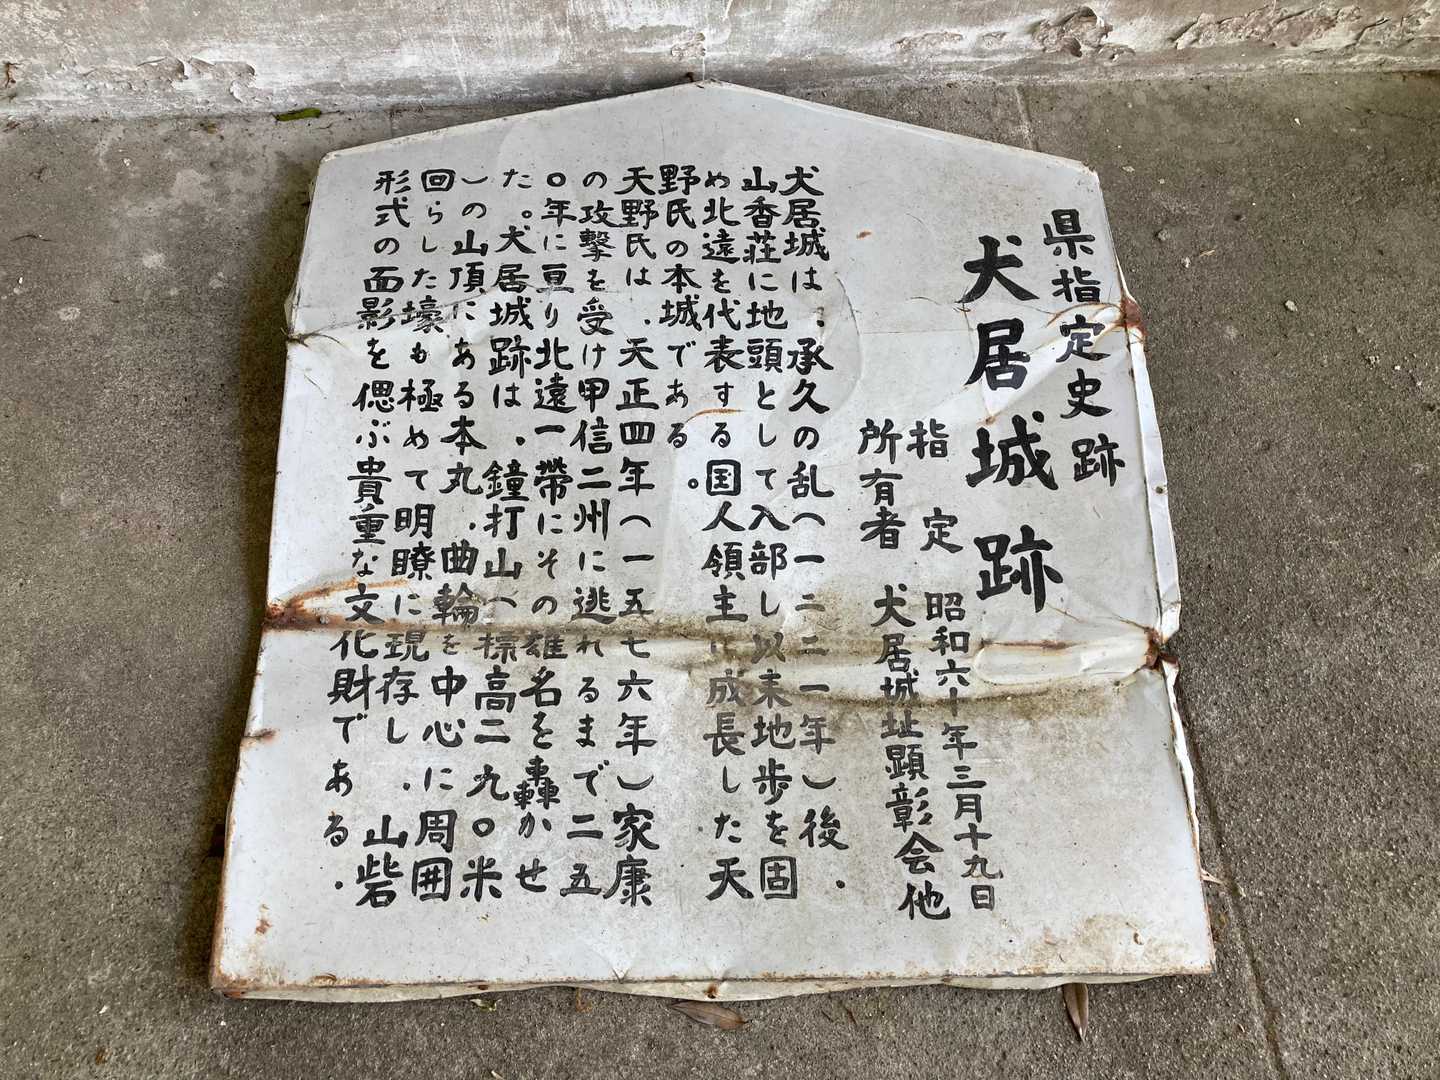 県指定史跡
犬居城跡
指定 昭和六十年三月十九日
所有者 犬居城址顕彰会他
犬居城は、承久の乱(一二二一年)後、
山香荘に地頭として入部し以来地歩を固
め北遠を代表する国人領主に成長した天
野氏の本城である。
天野氏は、天正四年(一五七六年)家康
の攻撃を受け甲信二州に逃れるまで二五
〇年に亘り北遠一帯にその雄名を轟かせ
た。犬居城跡は、鐘打山(標高二九〇米
)の山頂にある本丸、曲輪を中心に周囲
回らした壕も極めて明瞭に現存し、山砦
形式の面影を偲ぶ貴重な文化財である。